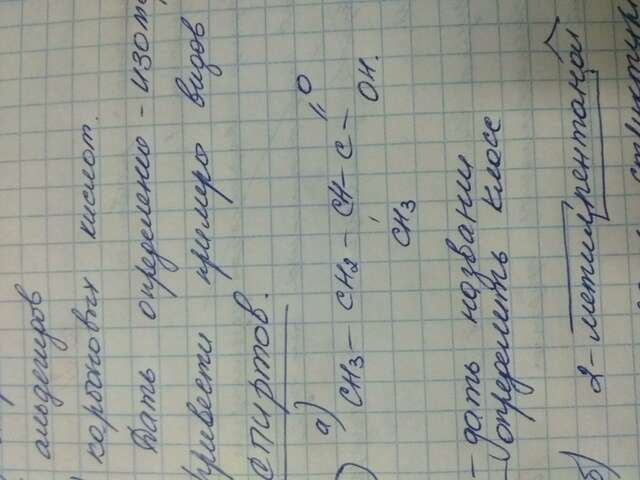 альдегидов
карбоновых кислот.
Дать определение - изоме
привести примеры видов
спиртов.
а)
O
CH3 - CH2 - CH - C -
OH.
CH3
- дать название
определить класс
б) 2-метилпентанол